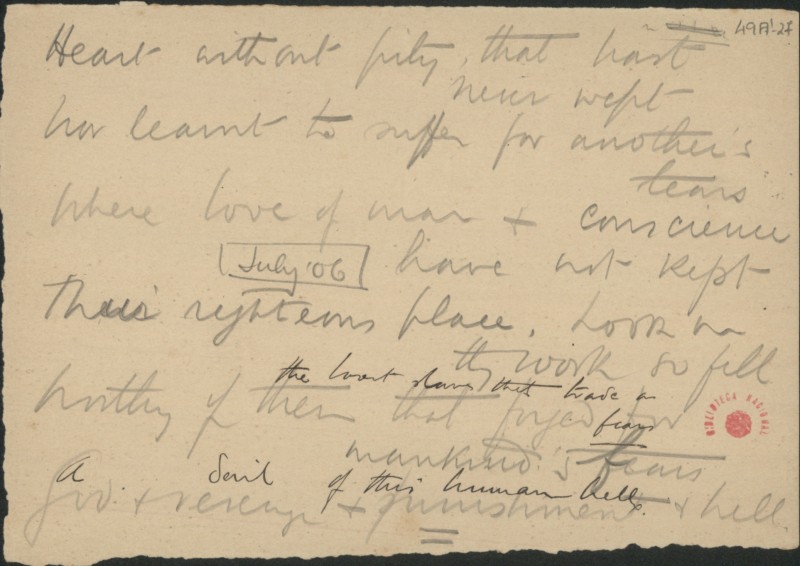 49A1-27
Heart without pity, that hast
never wept
nor learnt to suffer for another's
tears
where love of man + conscience
July '06
have not kept
Their righteous place. Look on
thy work so fell
the lowest slaves that trade on
worthy of them that forged for
fears
mankind's fears
a Devil of this human hell.
God + revenge + punishment + hell.
BIBLIOTECA NACIONAL